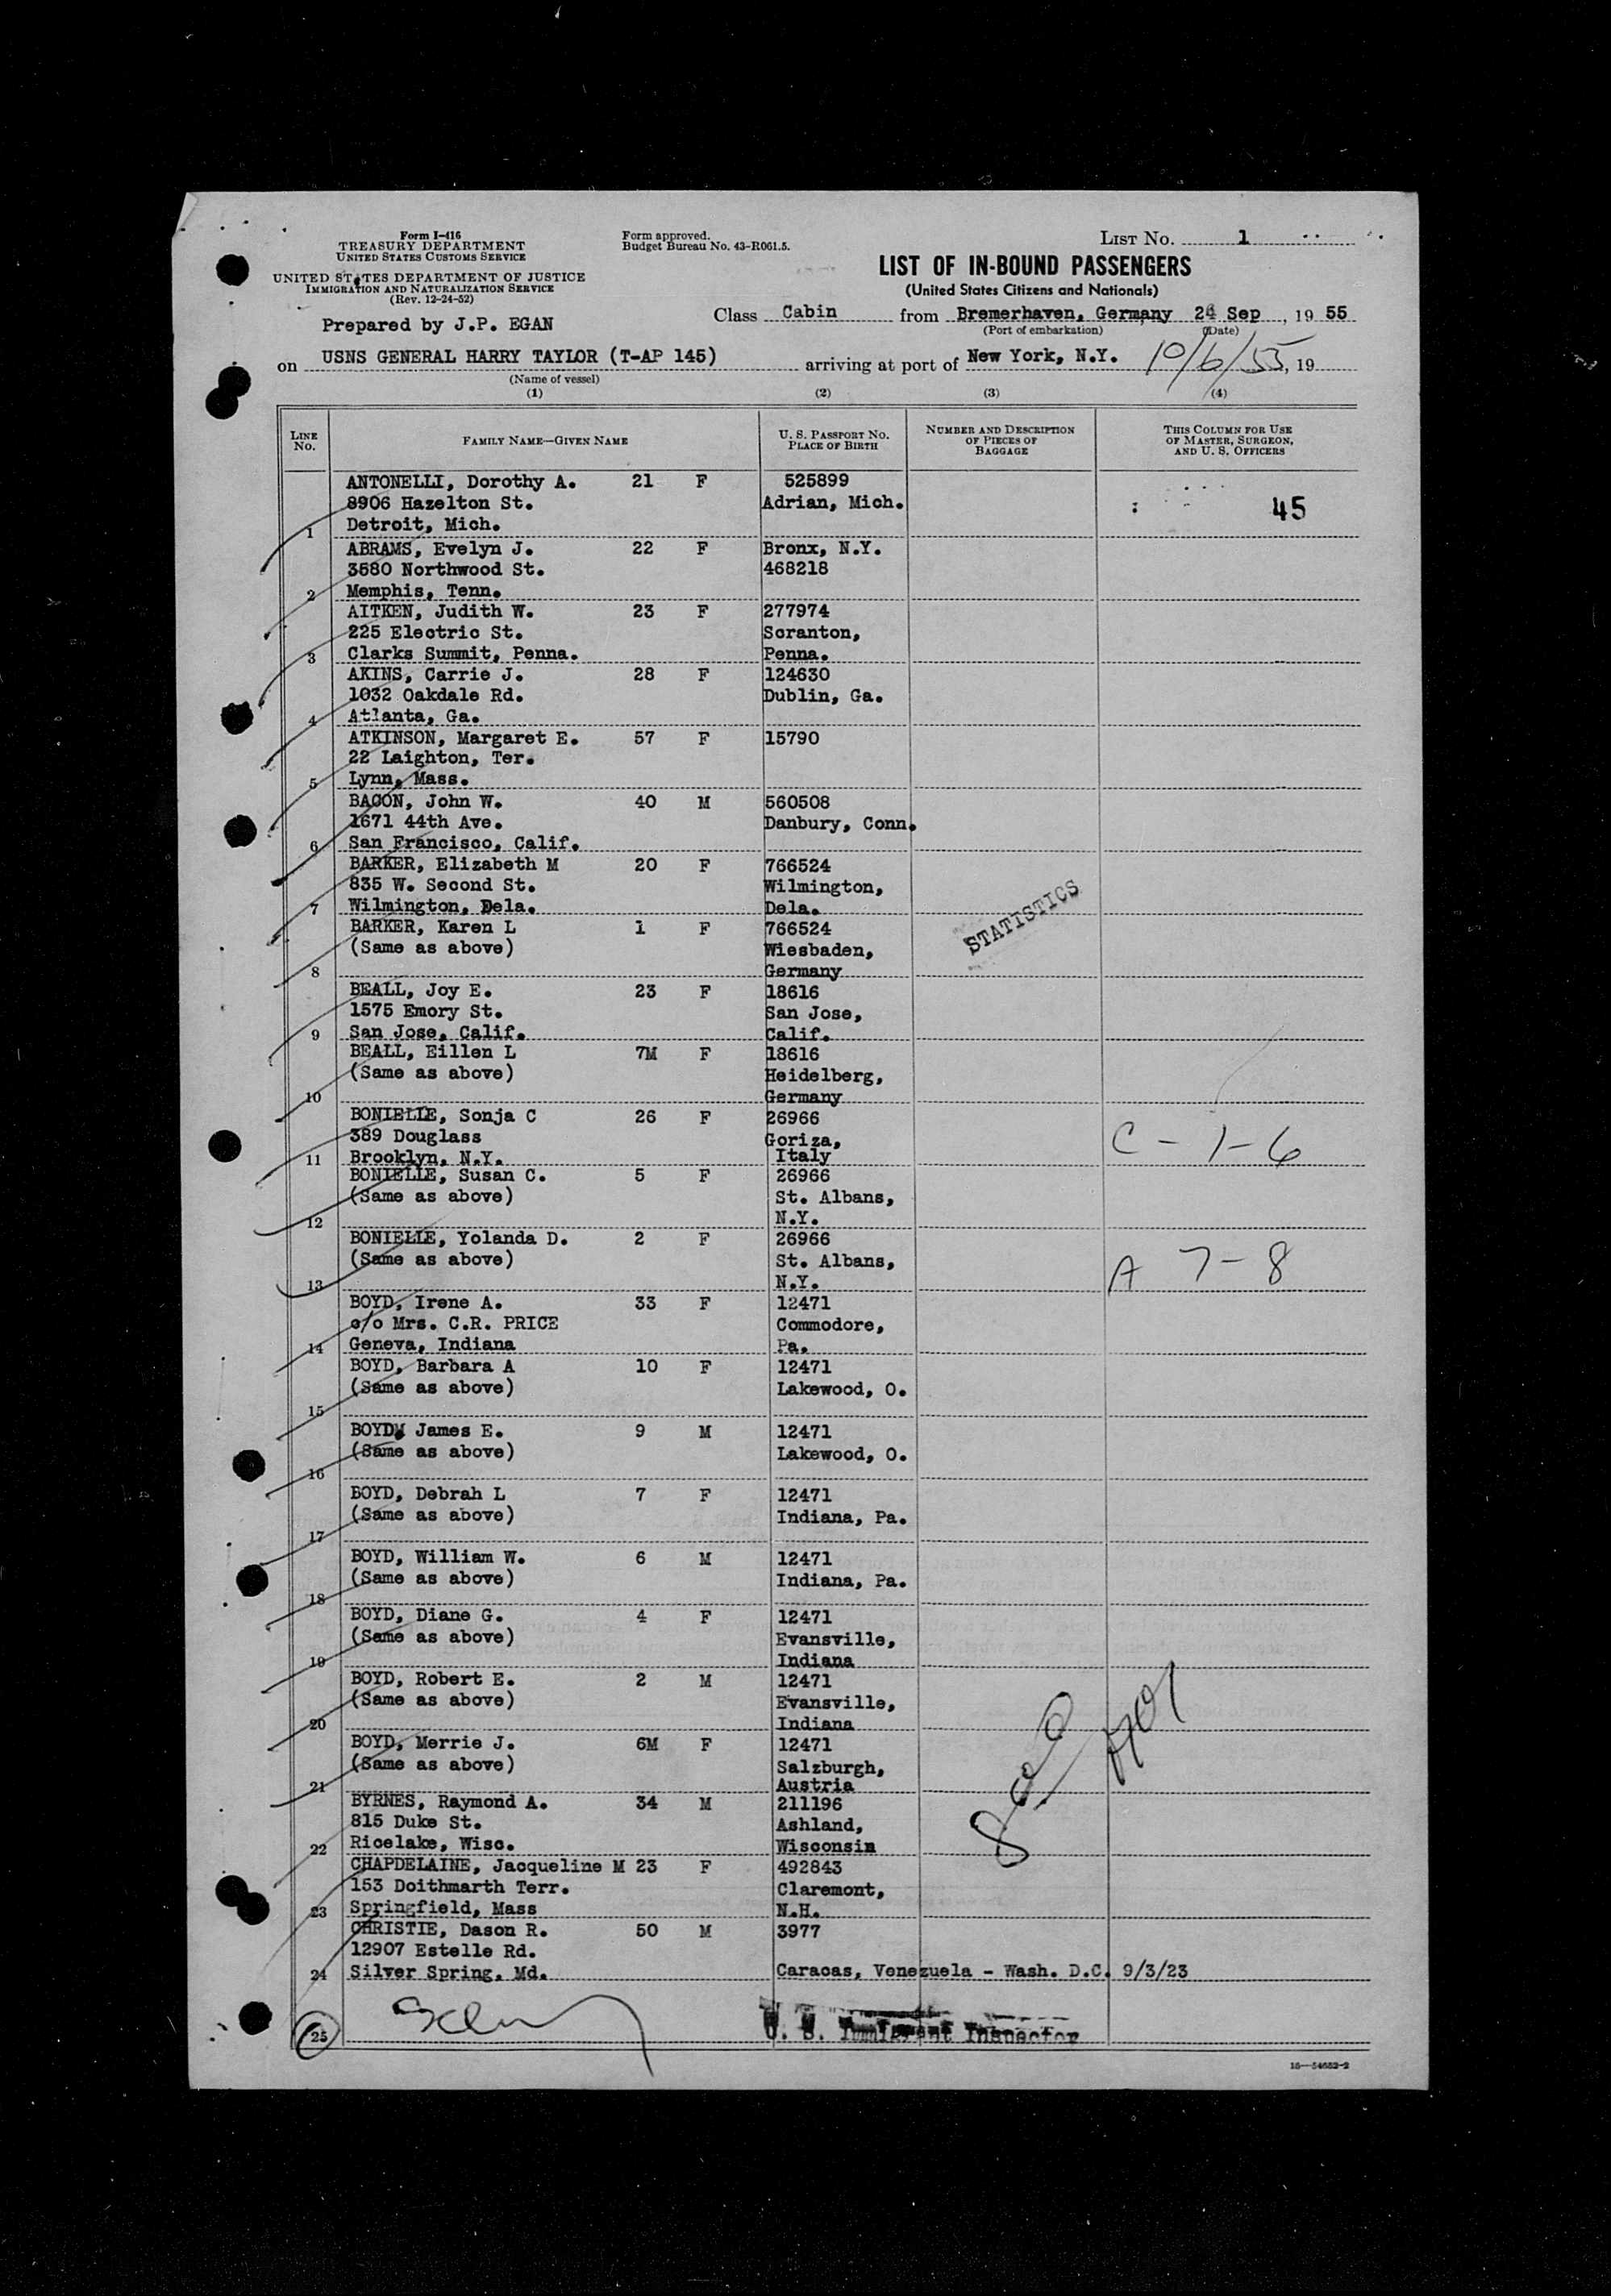 Form I-416
TREASURY DEPARTMENT
UNITED STATES CUSTOMS SERVICE
UNITED STATES DEPARTMENT OF JUSTICE
IMMIGRATION AND NATURALIZATION SERVICE
(Rev. 12-24-52)
Form approved.
Budget Bureau No. 43-R061.5.
LIST NO. 1
LIST OF IN-BOUND PASSENGERS
(United States Citizens and Nationals)
Prepared by J.P. EGAN
Class Cabin from Bremerhaven, Germany 24 Sep, 19 55
(Port of embarkation) (Date)
on USNS GENERAL HARRY TAYLOR (T-AP 145) arriving at port of New York, N.Y. 10/6/55, 19
(Name of vessel)
(1) (2) (3) (4)
LINE NO. FAMILY NAME—GIVEN NAME U. S. PASSPORT NO. PLACE OF BIRTH NUMBER AND DESCRIPTION OF PIECES OF BAGGAGE THIS COLUMN FOR USE OF MASTER, SURGEON, AND U. S. OFFICERS
ANTONELLI, Dorothy A. 21 F 525899
8906 Hazelton St. Adrian, Mich. : 45
1 Detroit, Mich.
ABRAMS, Evelyn J. 22 F Bronx, N.Y.
3580 Northwood St. 468218
2 Memphis, Tenn.
AITKEN, Judith W. 23 F 277974
225 Electric St. Scranton,
3 Clarks Summit, Penna. Penna.
AKINS, Carrie J. 28 F 124630
1032 Oakdale Rd. Dublin, Ga.
4 Atlanta, Ga.
ATKINSON, Margaret E. 57 F 15790
22 Laighton, Ter.
5 Lynn, Mass.
BACON, John W. 40 M 560508
1671 44th Ave. Danbury, Conn.
6 San Francisco, Calif.
BARKER, Elizabeth M 20 F 766524
835 W. Second St. Wilmington,
7 Wilmington, Dela. Dela.
STATISTICS
BARKER, Karen L 1 F 766524
(Same as above) Wiesbaden,
8 Germany
BEALL, Joy E. 23 F 18616
1575 Emory St. San Jose,
9 San Jose, Calif. Calif.
BEALL, Eillen L 7M F 18616
(Same as above) Heidelberg,
10 Germany
BONIELLE, Sonja C 26 F 26966
389 Douglass Goriza, C - 1-6
11 Brooklyn, N.Y. Italy
BONIELLE, Susan C. 5 F 26966
(Same as above) St. Albans,
12 N.Y.
BONIELLE, Yolanda D. 2 F 26966
(Same as above) St. Albans, A 7-8
13 N.Y.
BOYD, Irene A. 33 F 12471
c/o Mrs. C.R. PRICE Commodore,
14 Geneva, Indiana Pa.
BOYD, Barbara A 10 F 12471
(Same as above) Lakewood, O.
15
BOYD, James E. 9 M 12471
(Same as above) Lakewood, O.
16
BOYD, Debrah L 7 F 12471
(Same as above) Indiana, Pa.
17
BOYD, William W. 6 M 12471
(Same as above) Indiana, Pa.
18
BOYD, Diane G. 4 F 12471
(Same as above) Evansville,
19 Indiana
BOYD, Robert E. 2 M 12471
(Same as above) Evansville,
20 Indiana
BOYD, Merrie J. 6M F 12471
(Same as above) Salzburgh,
21 Austria
BYRNES, Raymond A. 34 M 211196
815 Duke St. Ashland,
22 Ricelake, Wisc. Wisconsin
CHAPDELAINE, Jacqueline M 23 F 492843
153 Doithmarth Terr. Claremont,
23 Springfield, Mass N.H.
CHRISTIE, Dason R. 50 M 3977
12907 Estelle Rd.
24 Silver Spring, Md. Caracas, Venezuela - Wash. D.C. 9/3/23
25 U. S. Immigrant Inspector
16—54652-2